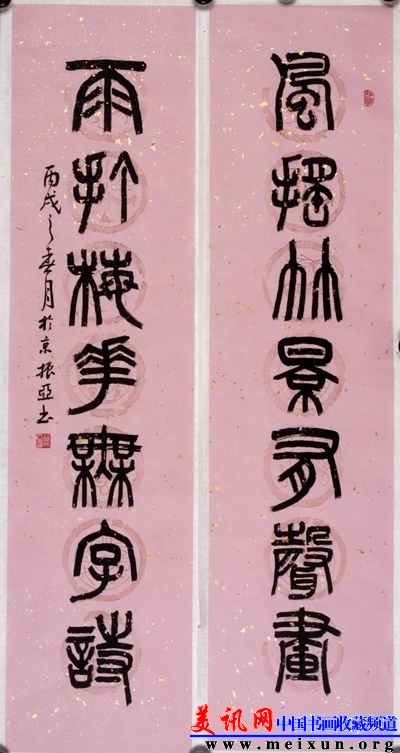 風搖竹景有聲畫
雨打梅華無字詩
丙戌之春月於京振亞书
美讯网 中国书画收藏频道
www.meixun.org